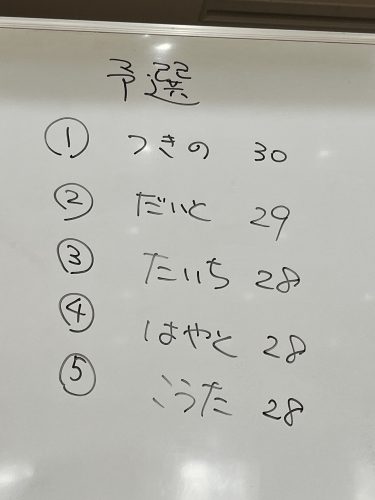 予選
① つきの 30
② だいと 29
③ たいち 28
④ はやと 28
⑤ こうた 28